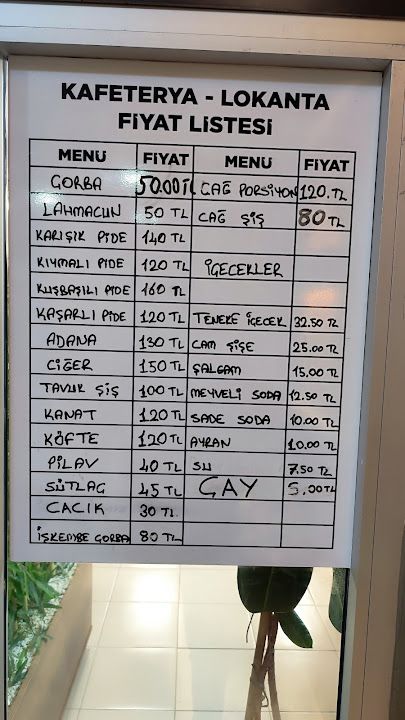 KAFETERYA - LOKANTA
FİYAT LİSTESİ
MENÜ FİYAT MENÜ FİYAT
ÇORBA 50.00 TL CAĞ PORSİYON 120.TL
LAHMACUN 50 TL CAĞ ŞİŞ 80 TL
KARIŞIK PİDE 140 TL
KIYMALI PİDE 120 TL İÇECEKLER
KUŞBAŞILI PİDE 160 TL
KAŞARLI PİDE 120 TL TENEKE İÇECEK 32.50 TL
ADANA 130 TL CAM ŞİŞE 25.00 TL
CİĞER 150 TL ŞALGAM 15.00 TL
TAVUK ŞİŞ 100 TL MEYVELİ SODA 12.50 TL
KANAT 120 TL SADE SODA 10.00 TL
KÖFTE 120 TL AYRAN 10.00 TL
PİLAV 40 TL SU 7.50 TL
SÜTLAÇ 45 TL ÇAY 5,00 TL
CACIK 30 TL
İŞKEMBE ÇORBA 80 TL